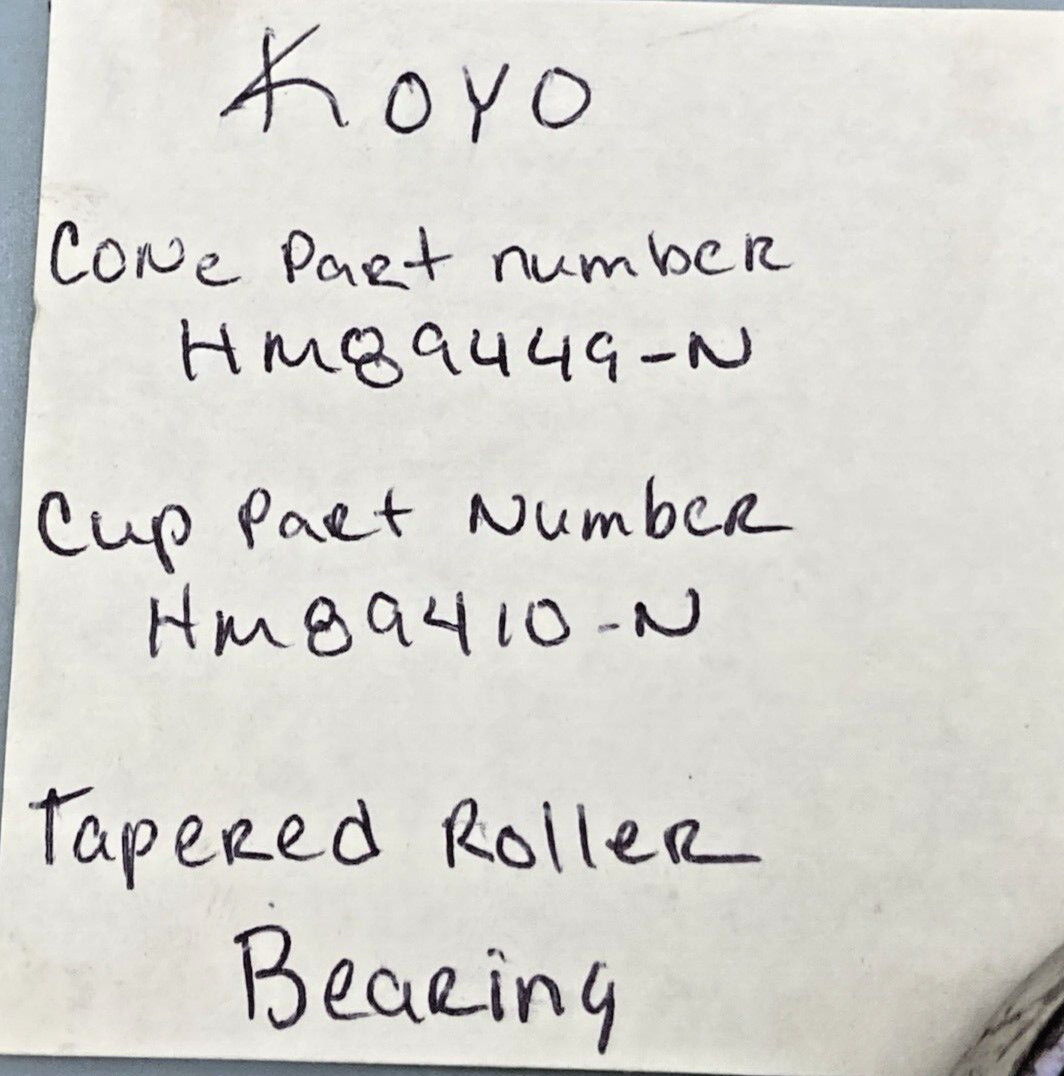 Koyo
Cone Part number
HM89449-N
Cup Part Number
HM89410-N
Tapered Roller
Bearing